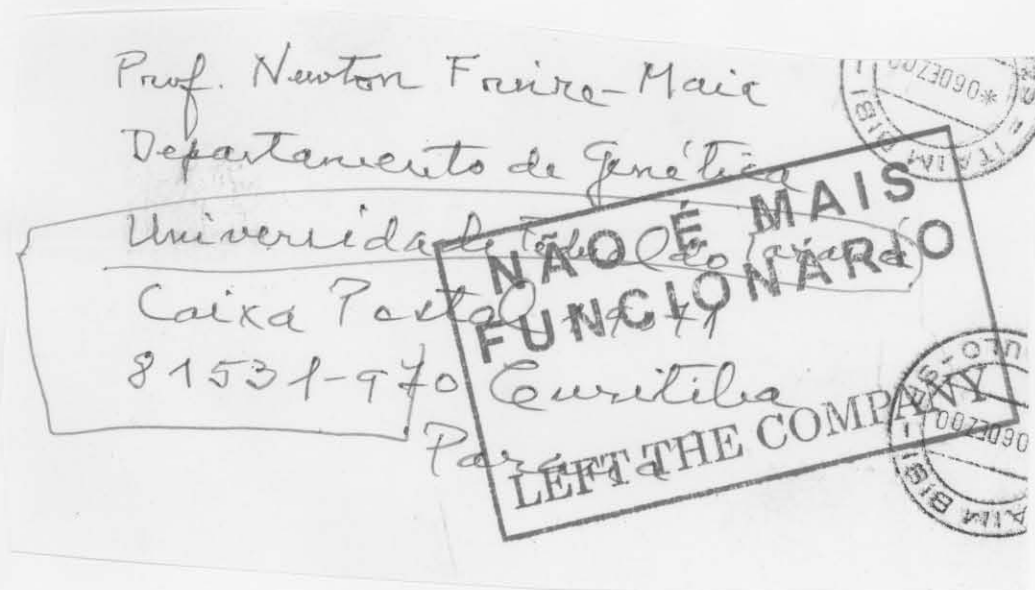 Prof. Newton Freire-Maia
Departamento de Genética
Universidade Federal do Paraná
Caixa Postal
81531-970 Curitiba
Paraná
NÃO É MAIS
FUNCIONÁRIO
LEFT THE COMPANY
ITAIM BIBI